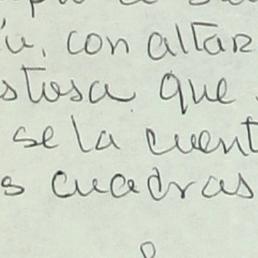 con altar
que
se la cuent
s cuadras